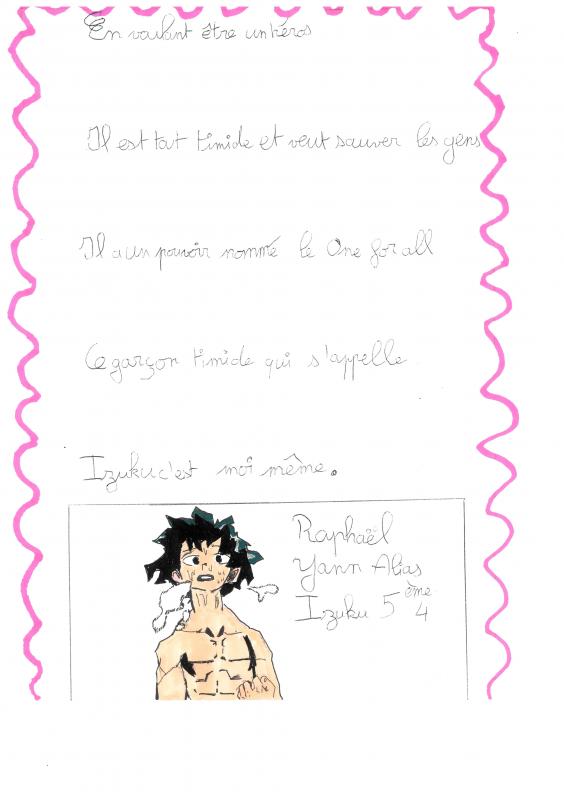 En voulant être un héros
Il est tout timide et veut sauver les gens
Il a un pouvoir nommé le One for all
Ce garçon timide qui s'appelle
Izuku c'est moi même.
Raphaël
Yann Alias
Izuku 5ème 4